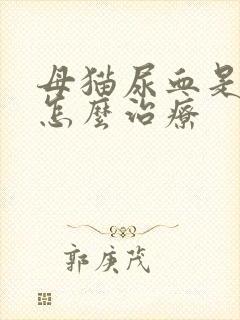 母猫尿血是
怎麼治療
郭庚茂